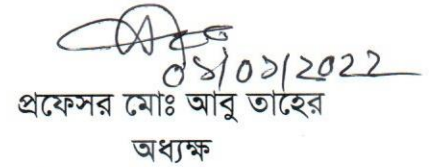 ০১/০১/2022
প্রফেসর মোঃ আবু তাহের
অধ্যক্ষ